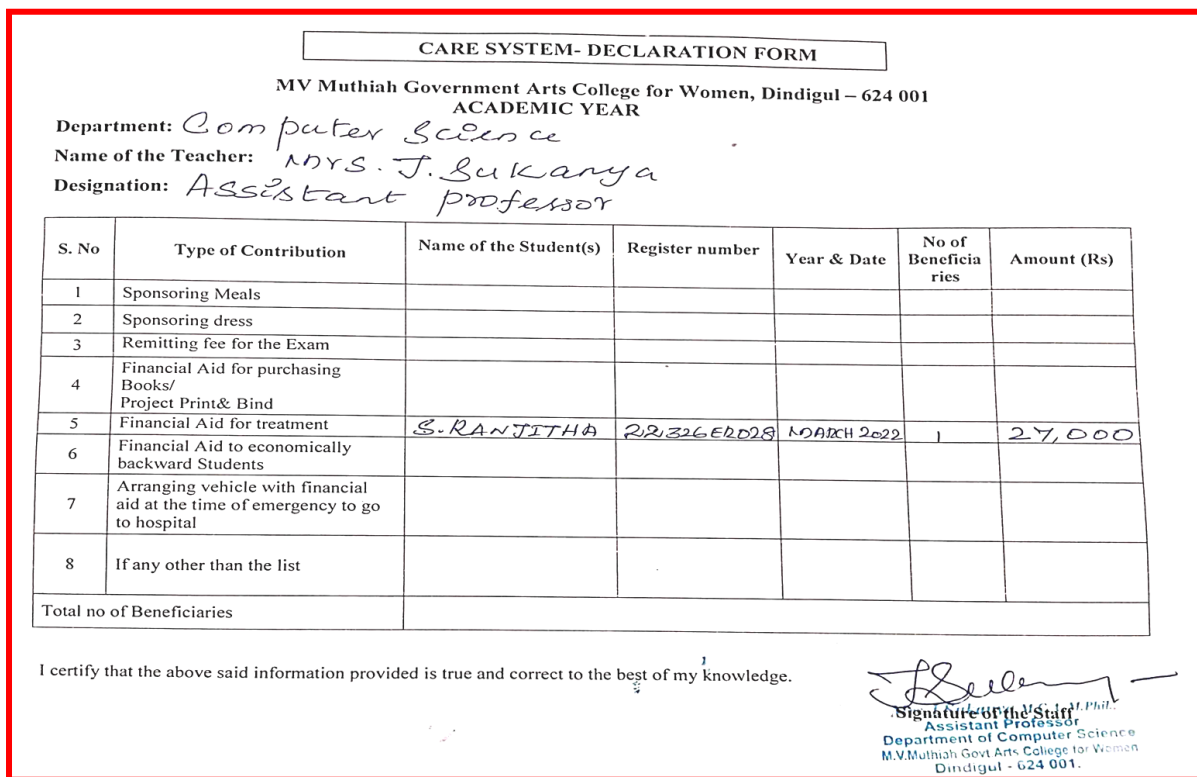 CARE SYSTEM- DECLARATION FORM
MV Muthiah Government Arts College for Women, Dindigul – 624 001
ACADEMIC YEAR
Department: Computer Science
Name of the Teacher: Mrs. J. Sukanya
Designation: Assistant professor
S. No Type of Contribution Name of the Student(s) Register number Year & Date No of Beneficia ries Amount (Rs)
1 Sponsoring Meals
2 Sponsoring dress
3 Remitting fee for the Exam
4 Financial Aid for purchasing
Books/
Project Print& Bind
5 Financial Aid for treatment S. RANJITHA 22326ER028 MARCH 2022 1 27,000
6 Financial Aid to economically
backward Students
7 Arranging vehicle with financial
aid at the time of emergency to go
to hospital
8 If any other than the list
Total no of Beneficiaries
I certify that the above said information provided is true and correct to the best of my knowledge.
Signature of the Staff M.Phil.,
Assistant Professor
Department of Computer Science
M.V.Muthiah Govt Arts College for Women
Dindigul - 624 001.